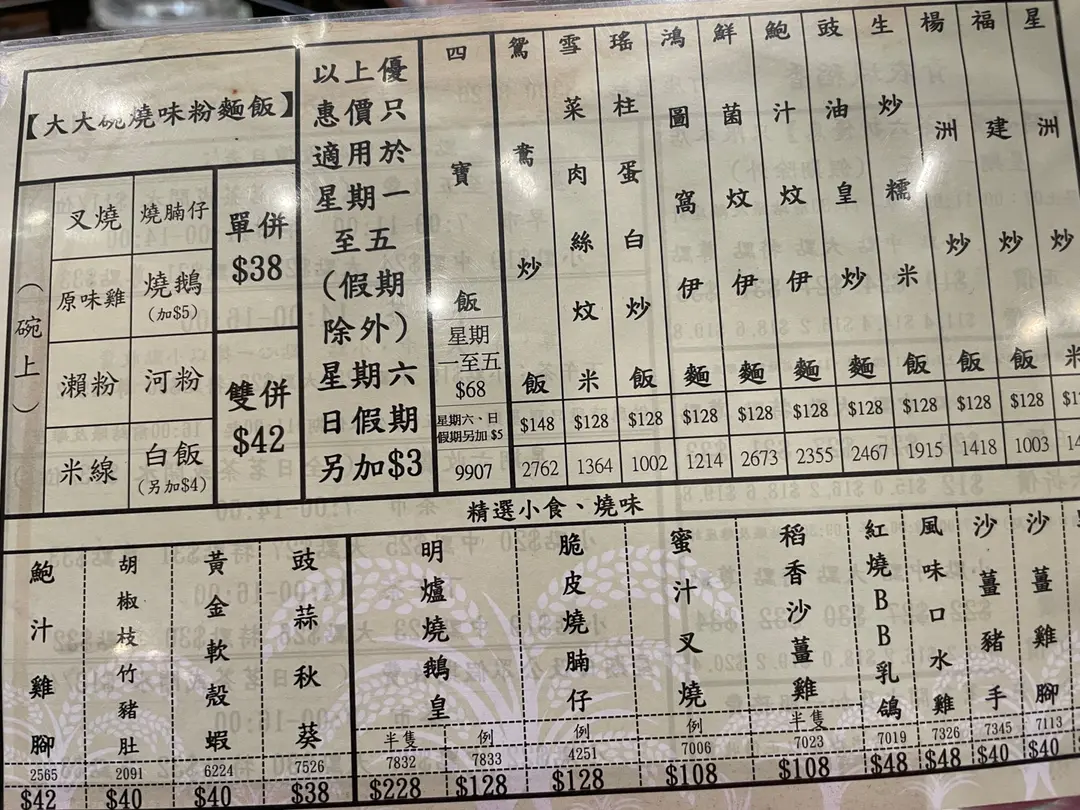 【大大碗燒味粉麵飯】
（碗上）
叉燒
燒腩仔
原味雞
燒鵝
(加$5)
瀨粉
河粉
米線
白飯
(另加$4)
單併
$38
雙併
$42
以上優
惠價只
適用於
星期一
至五
(假期
除外)
星期六
日假期
另加$3
四寶飯
星期
一至五
$68
星期六、日
假期另加 $5
9907
鴛鴦炒飯
$148
2762
雪菜肉絲炆米
$128
1364
瑤柱蛋白炒飯
$128
1002
鴻圖窩伊麵
$128
1214
鮮菌炆伊麵
$128
2673
鮑汁炆伊麵
$128
2355
豉油皇炒麵
$128
2467
生炒糯米飯
$128
1915
楊洲炒飯
$128
1418
福建炒飯
$128
1003
星洲炒米
精選小食、燒味
鮑汁雞腳
2565
$42
胡椒枝竹豬肚
2091
$40
黃金軟殼蝦
6224
$40
豉蒜秋葵
7526
$38
明爐燒鵝皇
半隻
7832
$228
例
7833
$128
脆皮燒腩仔
例
4251
$128
蜜汁叉燒
例
7006
$108
稻香沙薑雞
半隻
7023
$108
紅燒BB乳鴿
7019
$48
風味口水雞
7326
$48
沙薑豬手
7345
$40
沙薑雞腳
7113
$40